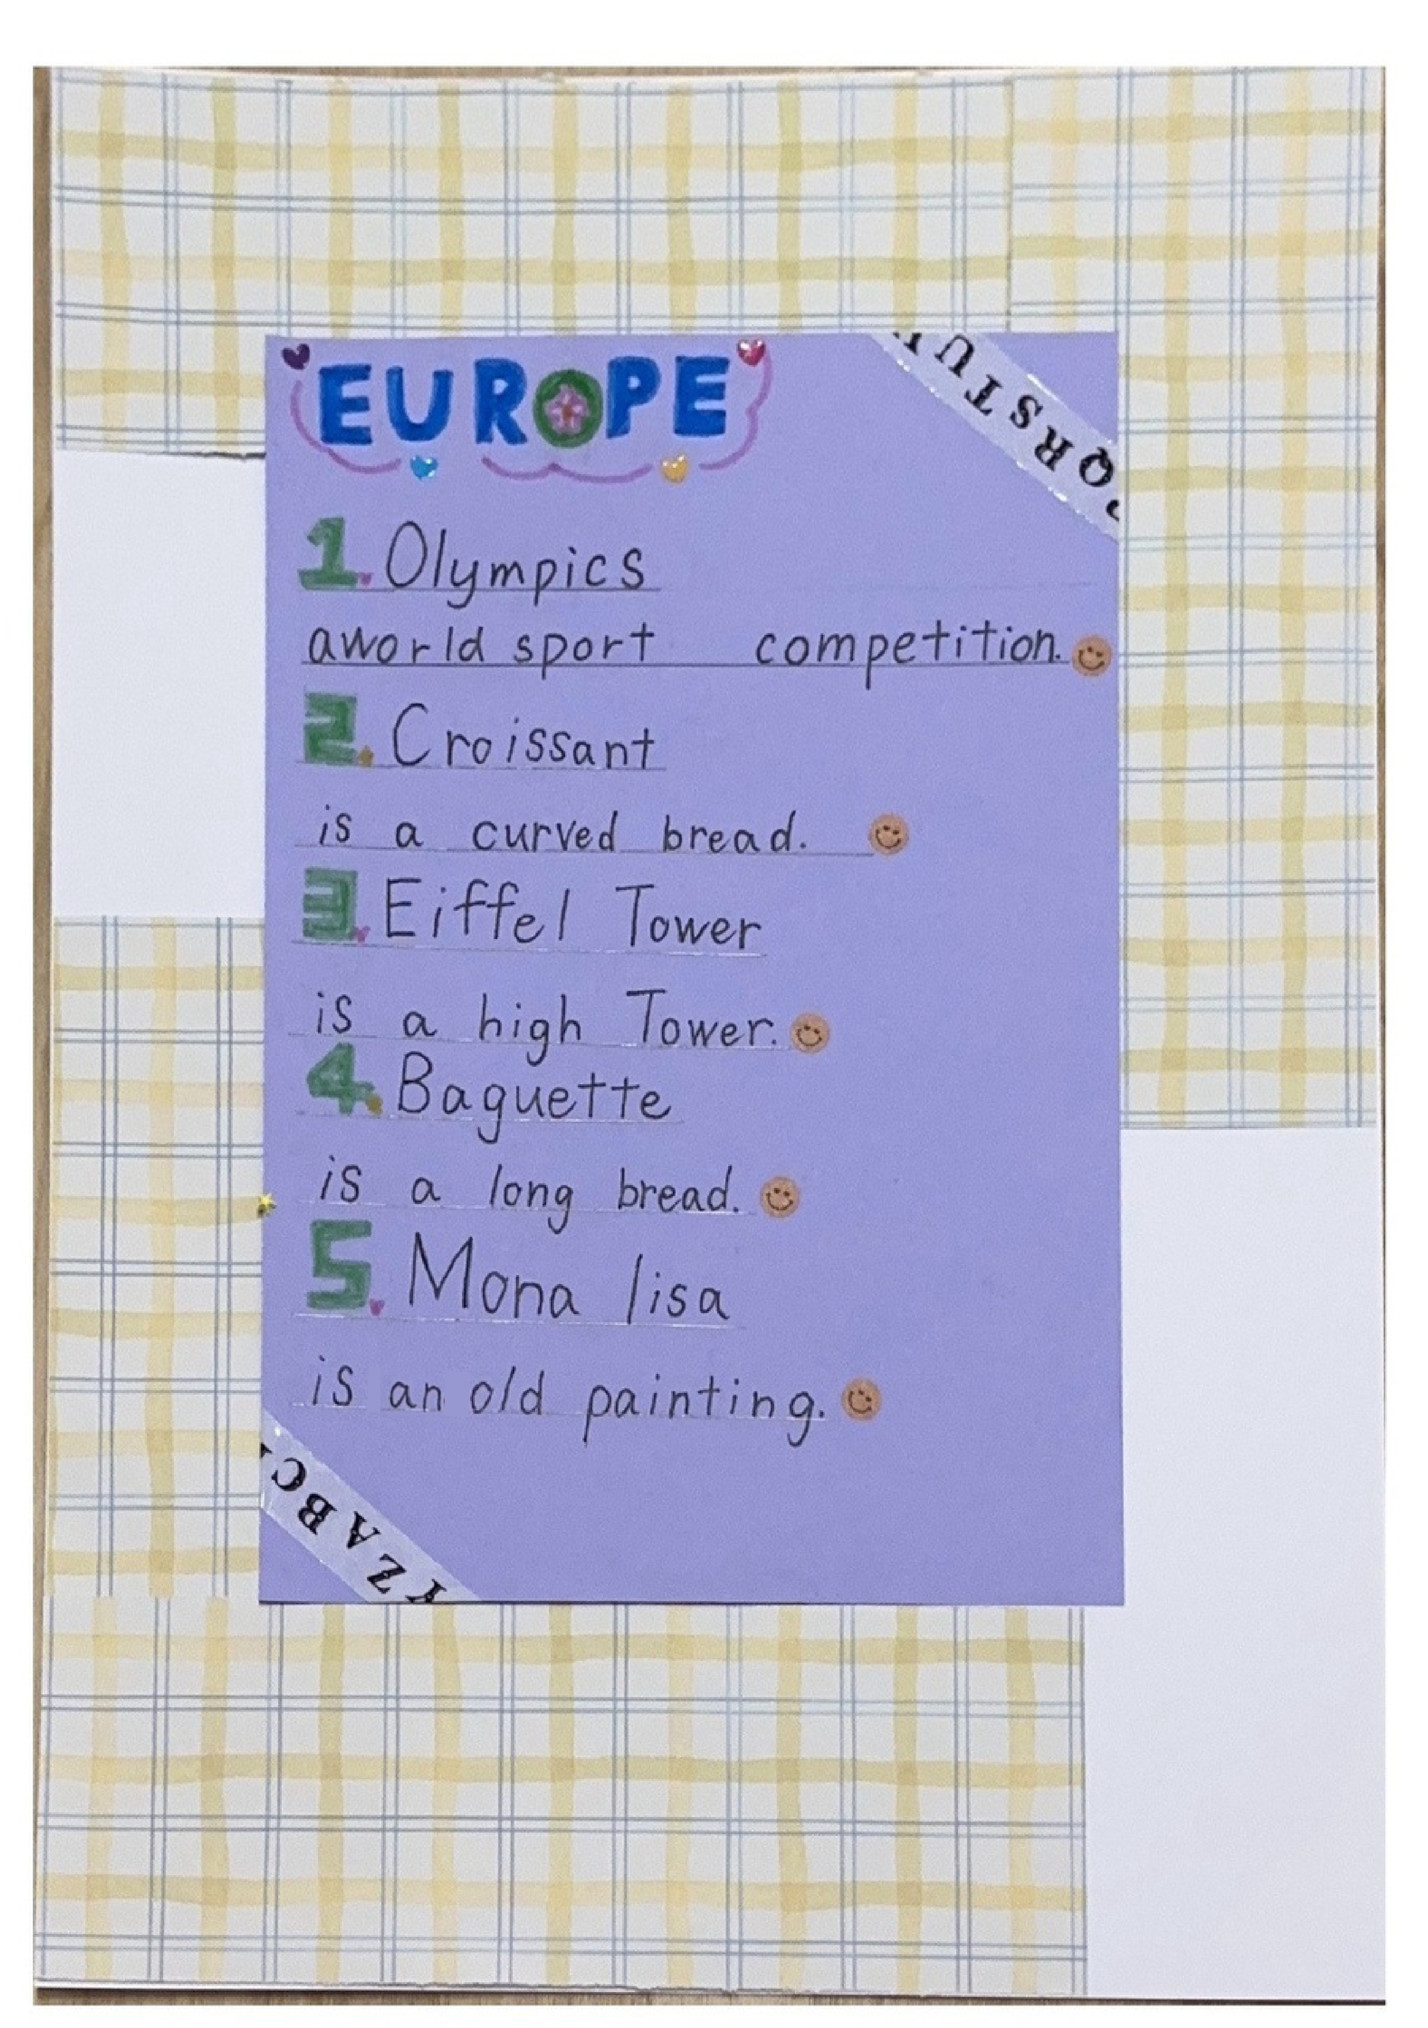 EUROPE
QRSTU
1. Olympics
a world sport competition.
2. Croissant
is a curved bread.
3. Eiffel Tower
is a high Tower.
4. Baguette
is a long bread.
5. Mona lisa
is an old painting.
YZABC